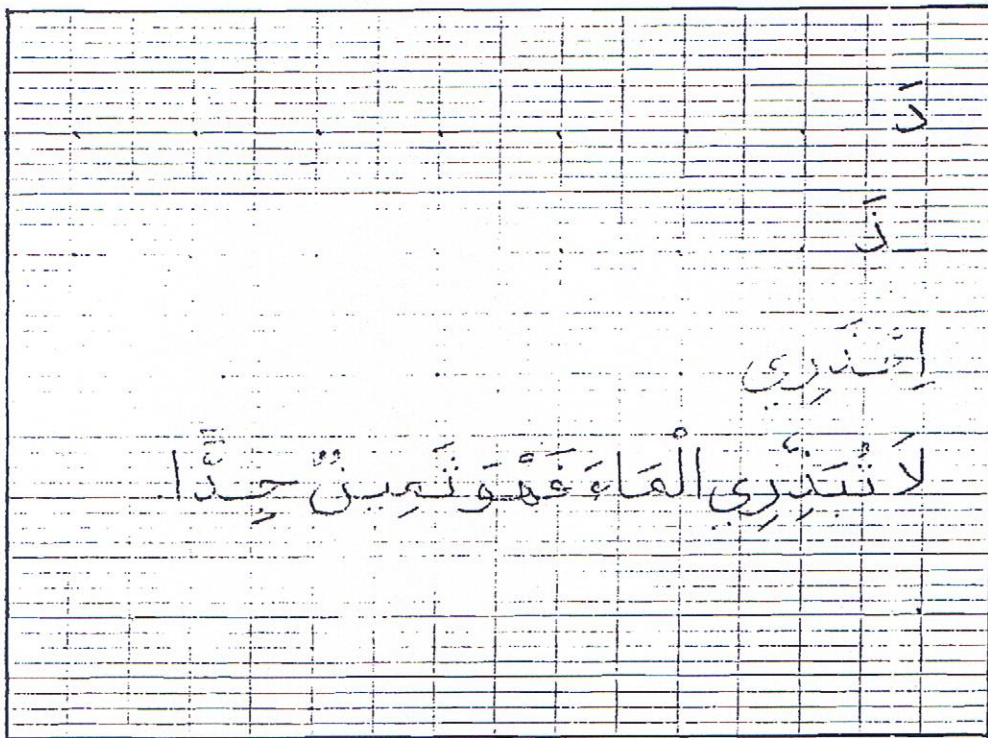 دَ
ذَ
اِحْذَرِي
لَا تُبَذِّرِي الْمَاءَ فَهْوَ ثَمِينٌ جِدًّا.